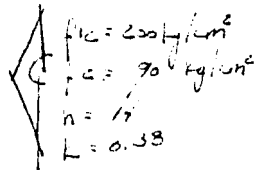 f'c = 200 kg/cm²
fc = 90 kg/cm²
n = 
k = 0.38